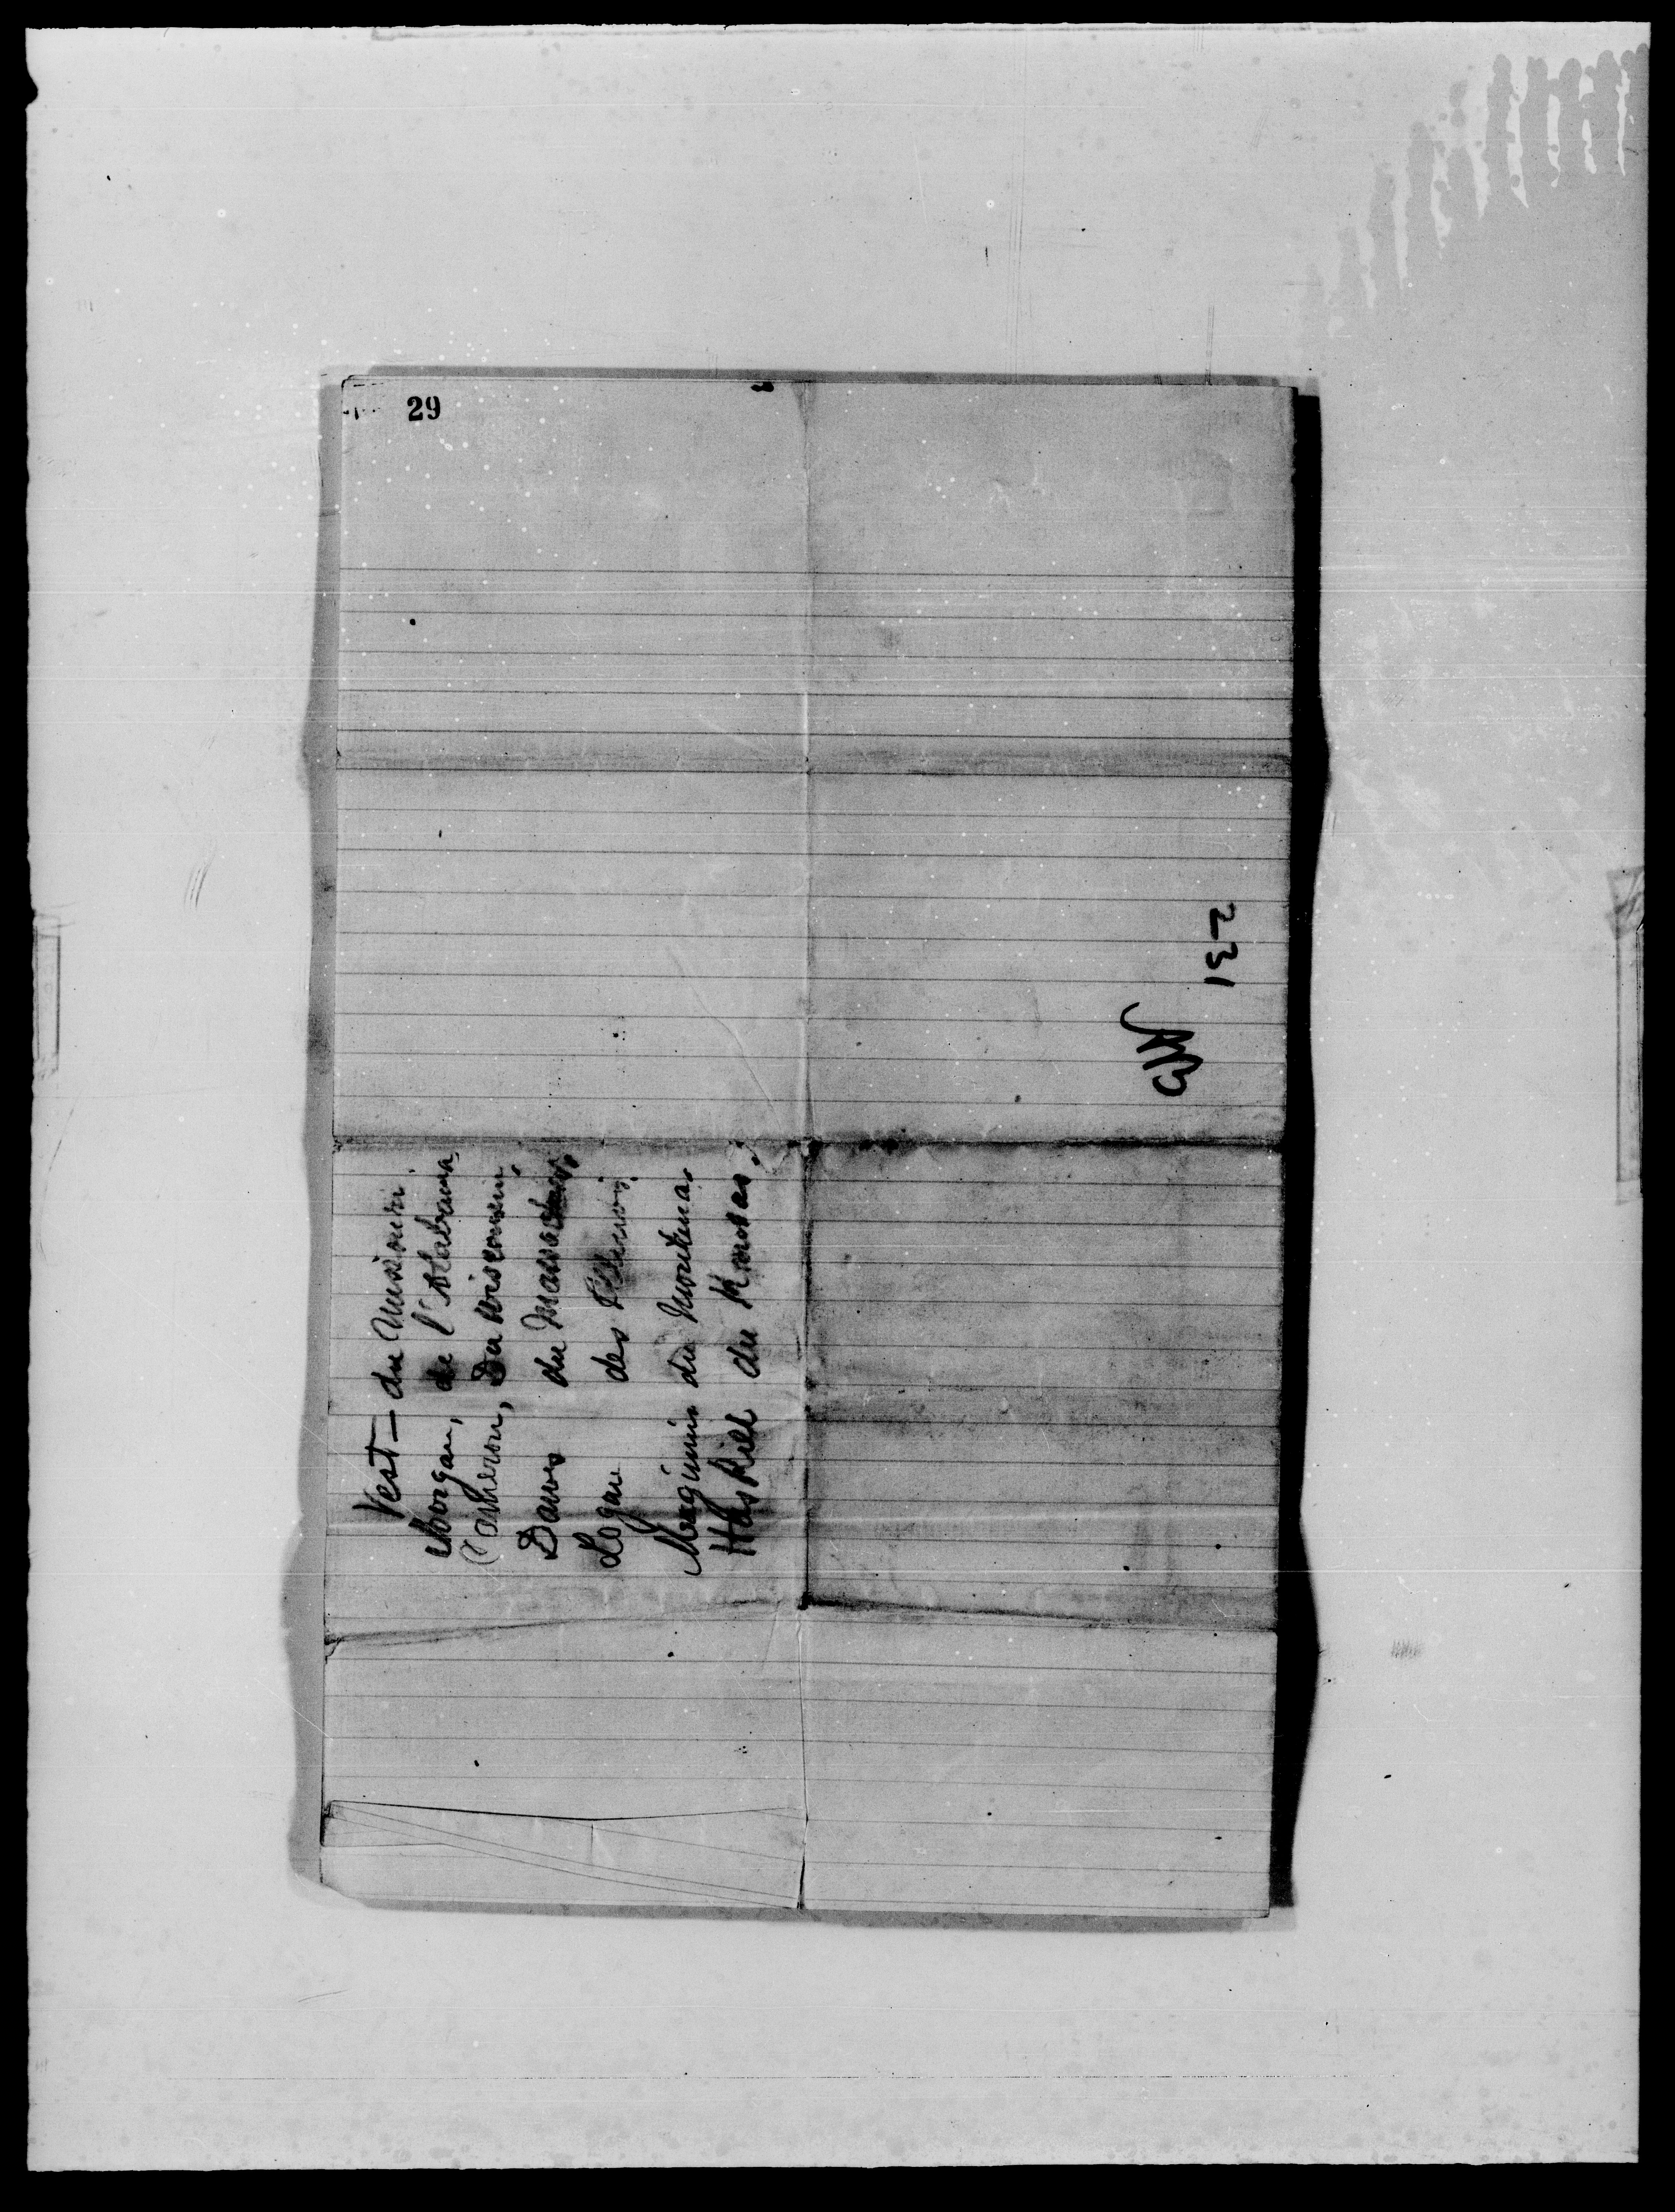 29
Vest — du Missouri
Morgan, de l'Alabama,
Cameron, Du Wisconsin,
Dawes du Massachus.
Logan des Illinois,
Maginnis du Montana.
Haskell du Kansas.
231